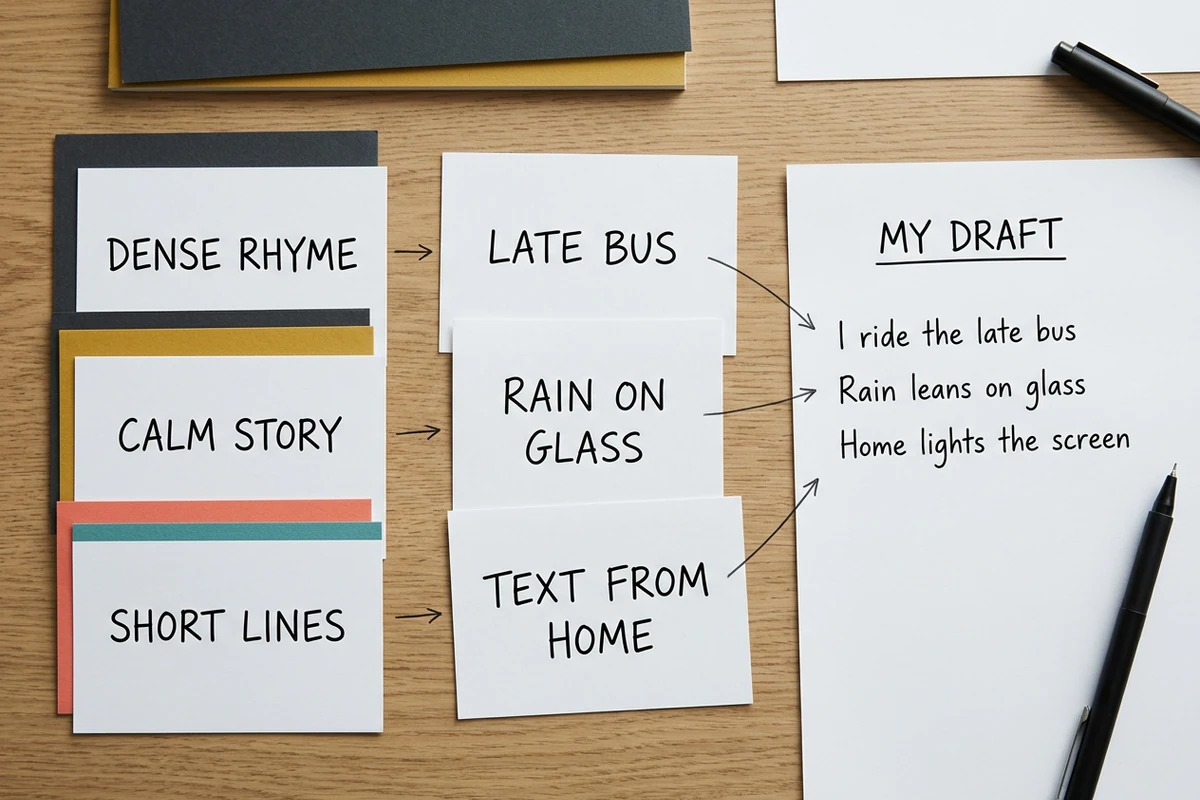 DENSE RHYME
CALM STORY
SHORT LINES
LATE BUS
RAIN ON
GLASS
TEXT FROM
HOME
MY DRAFT
I ride the late bus
Rain leans on glass
Home lights the screen